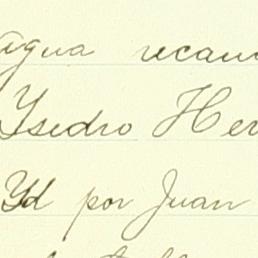 agua recau
Ysedro Her
Yd por Juan